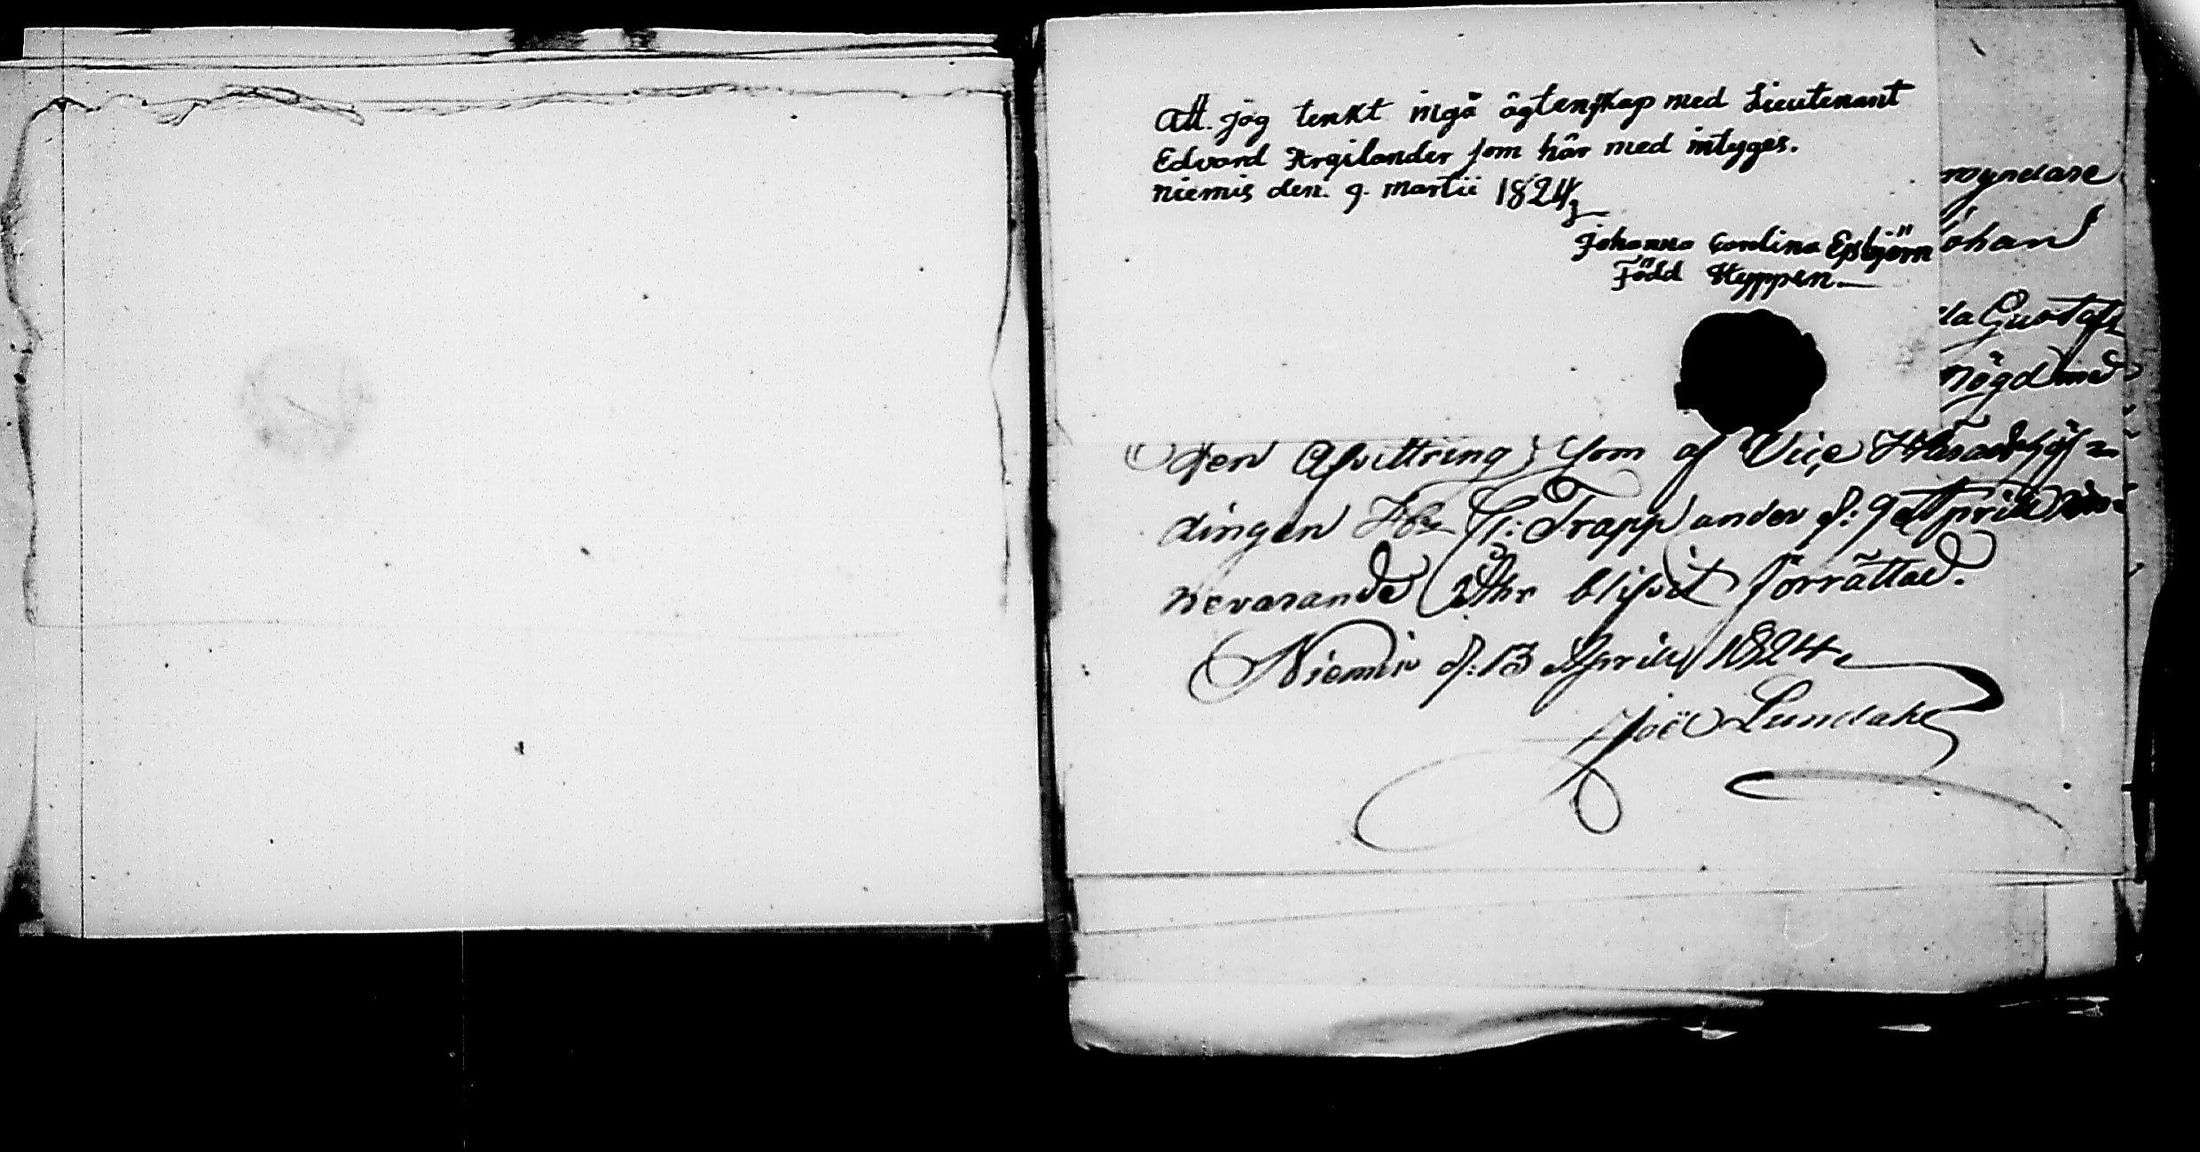 Att jag tenkt ingå ägtenskap med Lieutenant
Edvard Argilander som här med intyges.
niemis den. 9. martii 1824
Johanna Carolina Esbjörn
Född Hyppén.
myndare
Johan
da Gustaf
nögd med
den Afvittring, som af Vice Häradshöf-
dingen H:r C: Trapp under d: 9 April in-
nevarande Åhr blifvit förrättad.
Niemis d: 13 April 1824
Joël Lundahl